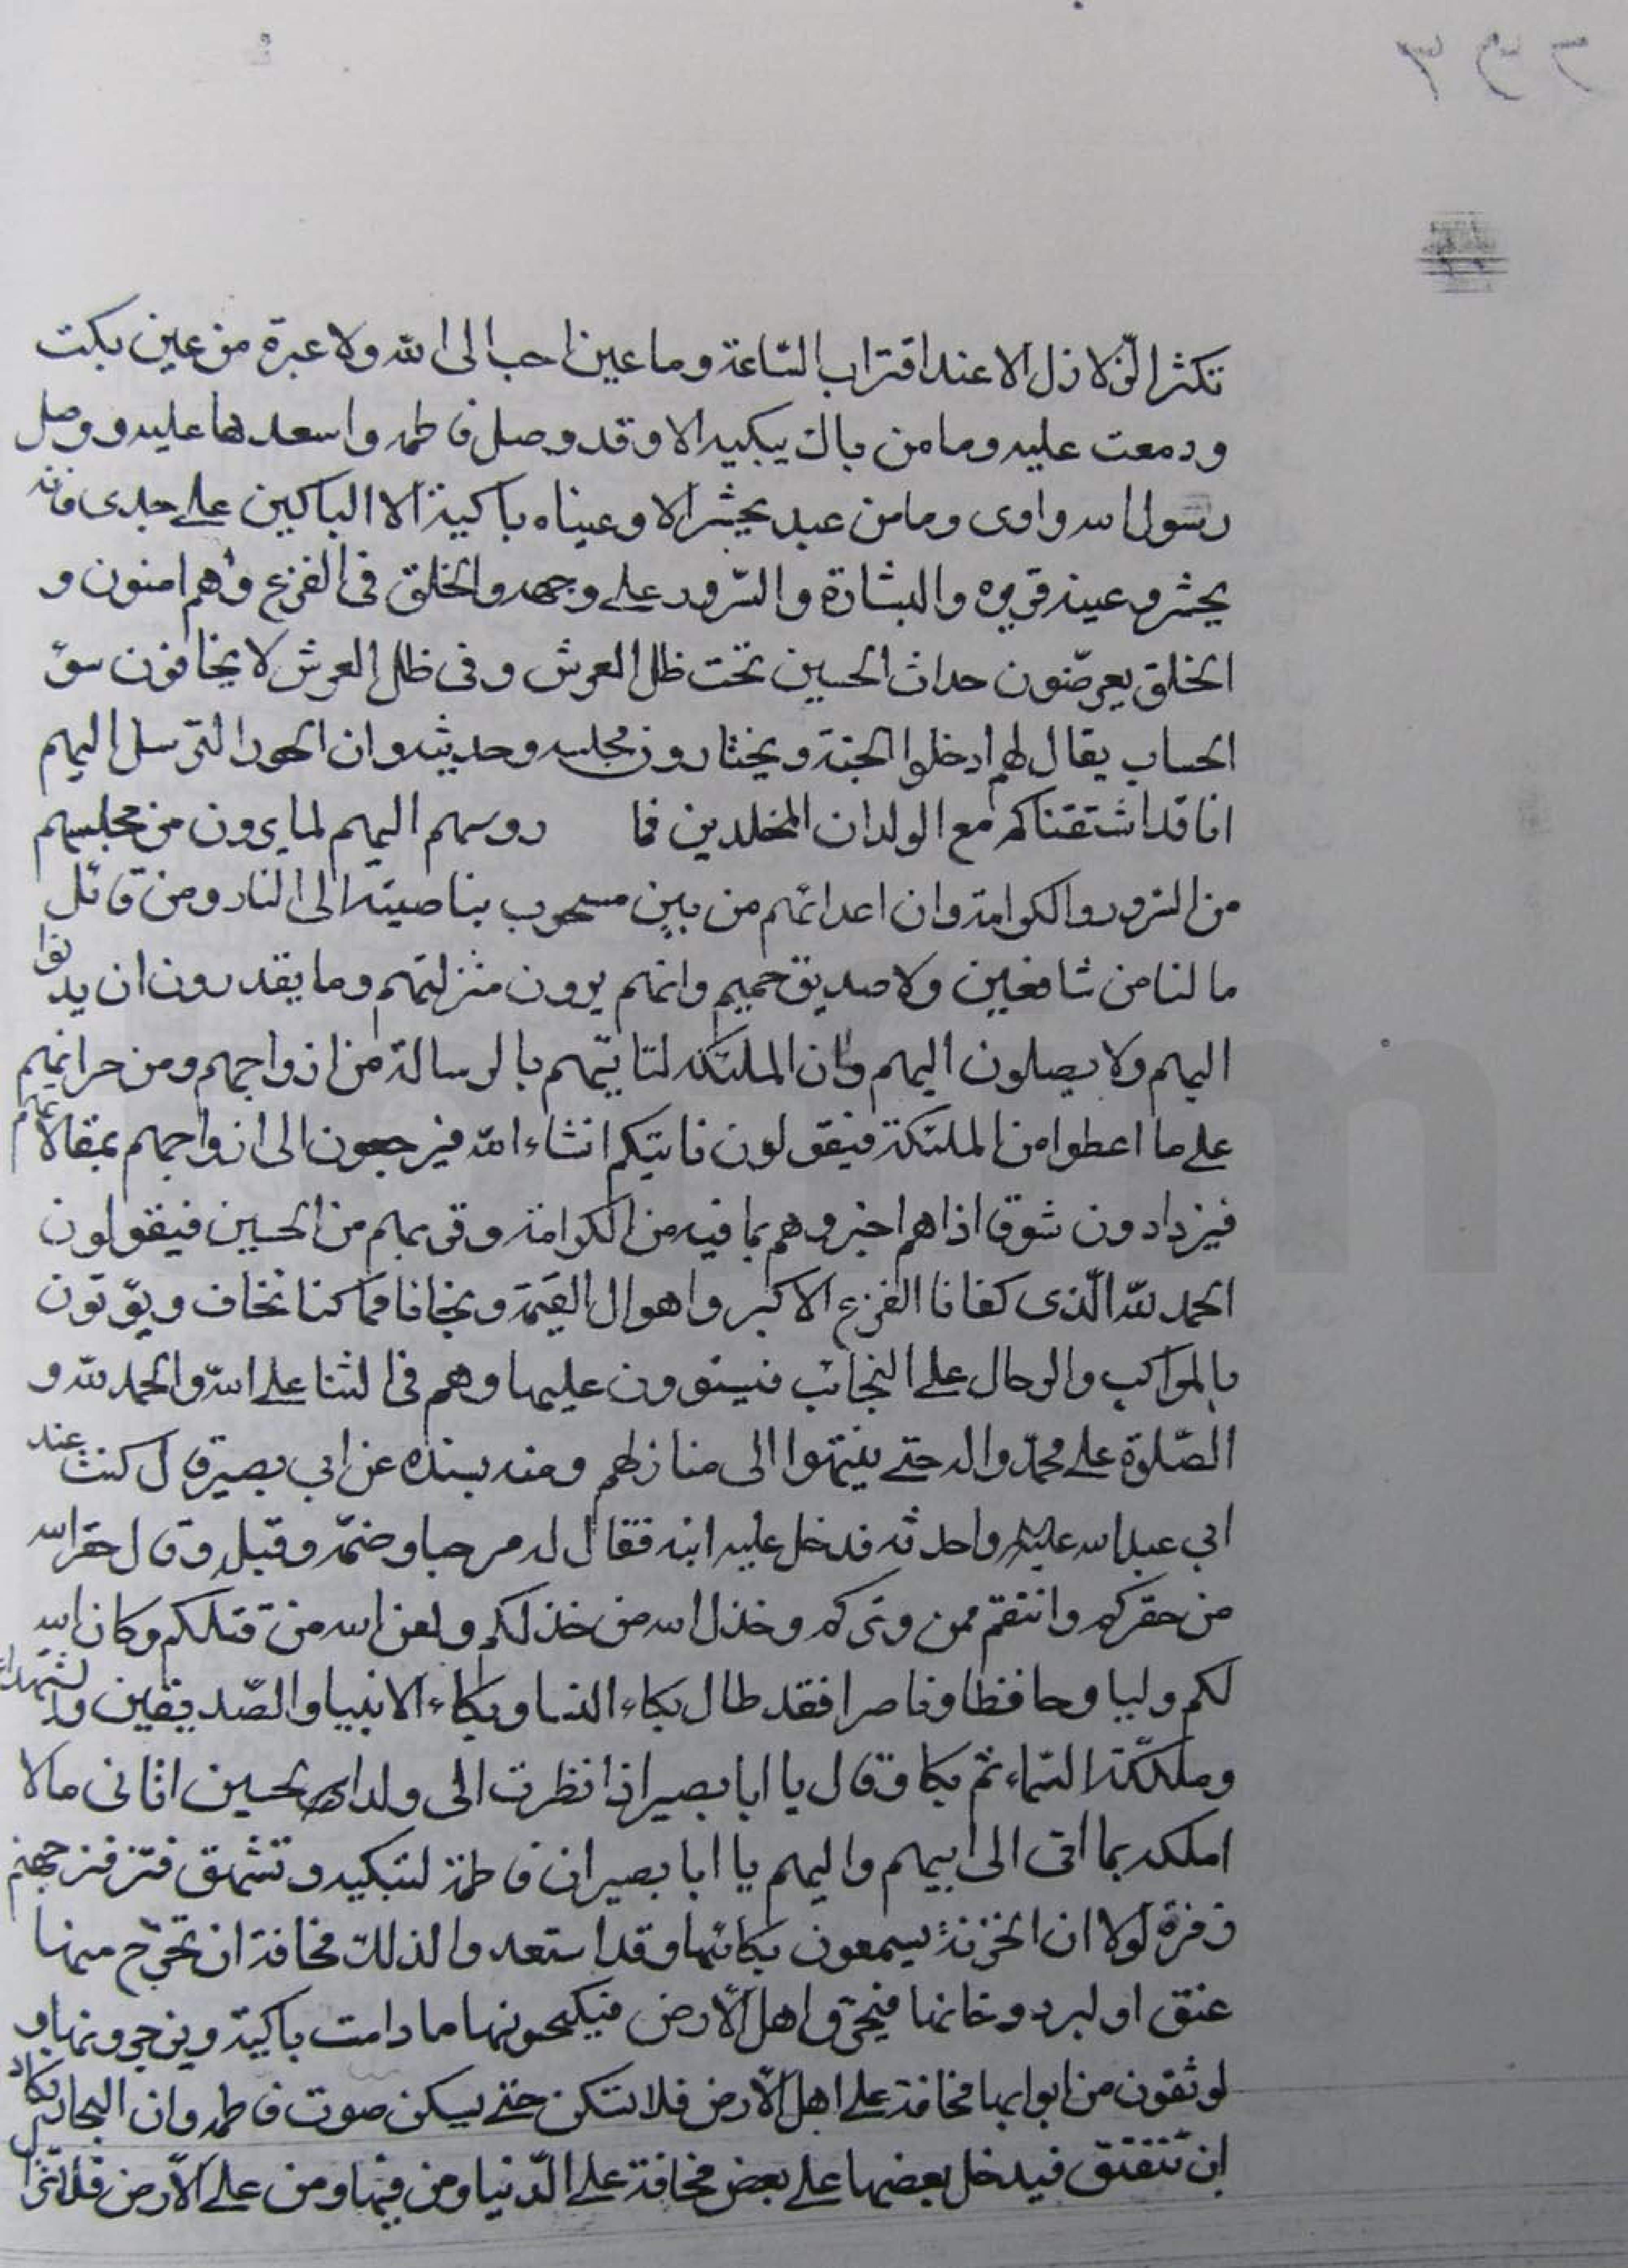 تكثر الزلازل الا عند اقتراب الساعة وما عين احب الى الله ولا عبرة من عين بكت
ودمعت عليه وما من باك يبكيه الا وقد وصل فاطمه واسعدها عليه ووصل
رسول الله وادى وما من عبد يحشر الا وعيناه باكية الا الباكين على جدى فانه
يحشر وعينه قريره والبشارة والسرور على وجهه والخلق فى الفزع وهم امنون و
الخلق يعرضون حداث الحسين تحت ظل العرش وفى ظل العرش لا يخافون سوء
الحساب يقال لهم ادخلوا الجنة ويختارون مجلسه وحديثه وان الحور لترسل اليهم
انا قد اشتقناكم مع الولدان المخلدين فما روسهم اليهم لما يرون من مجلسهم
من السرور والكرامة وان اعدائهم من بين مسحوب بناصيته الى النار ومن قائل
ما لنا من شافعين ولا صديق حميم وانهم يرون منزلتهم وما يقدرون ان يدنوا
اليهم ولا يصلون اليهم وان الملئكة لتاتيهم بالرسالة من ازواجهم ومن خزانهم
على ما اعطوا من الملئكة فيقولون ناتيكم انشاء الله فيرجعون الى ازواجهم بمقالاتهم
فيزدادون شوق اذا هم اخبروهم بما فيه من الكرامة وقربهم من الحسين فيقولون
الحمد لله الذى كفانا الفزع الاكبر واهوال القيمة ونجانا مما كنا نخاف ويؤتون
بالمراكب والرحال على النجائب فيستوون عليها وهم فى الثنا على الله والحمد لله و
الصلوة على محمد واله حتى ينتهوا الى منازلهم ومنه بسنده عن ابي بصير قال كنت عند
ابي عبد الله عليه السلام واحدثه فدخل عليه ابنه فقال له مرحبا وضمه وقبله وقال حقر الله
من حقركم وانتقم ممن وتركم وخذل الله من خذلكم ولعن الله من قتلكم وكان الله
لكم وليا وحافظا وناصرا فقد طال بكاء النسا وبكاء الانبيا والصديقين والشهداء
وملئكة السماء ثم بكا وقال يا ابا بصير اذا نظرت الى ولد الحسين اتانى ما لا
املكه بما اتى الى ابيهم واليهم يا ابا بصير ان فاطمة لتبكيه وتشهق فتزفز جهنم
زفرة لولا ان الخزنة يسمعون بكائها وقد استعدوا لذلك مخافة ان تخرج منها
عنق او لبرد وخانها فيحرق اهل الارض فيكبحونها ما دامت باكية ويزجرونها و
يوثقون من ابوابها مخافة على اهل الارض فلا تسكن حتى يسكن صوت فاطمه وان البحار تكاد
ان تنفتق فيدخل بعضها على بعض مخافة على الدنيا ومن فيها ومن على الارض فلا تزال